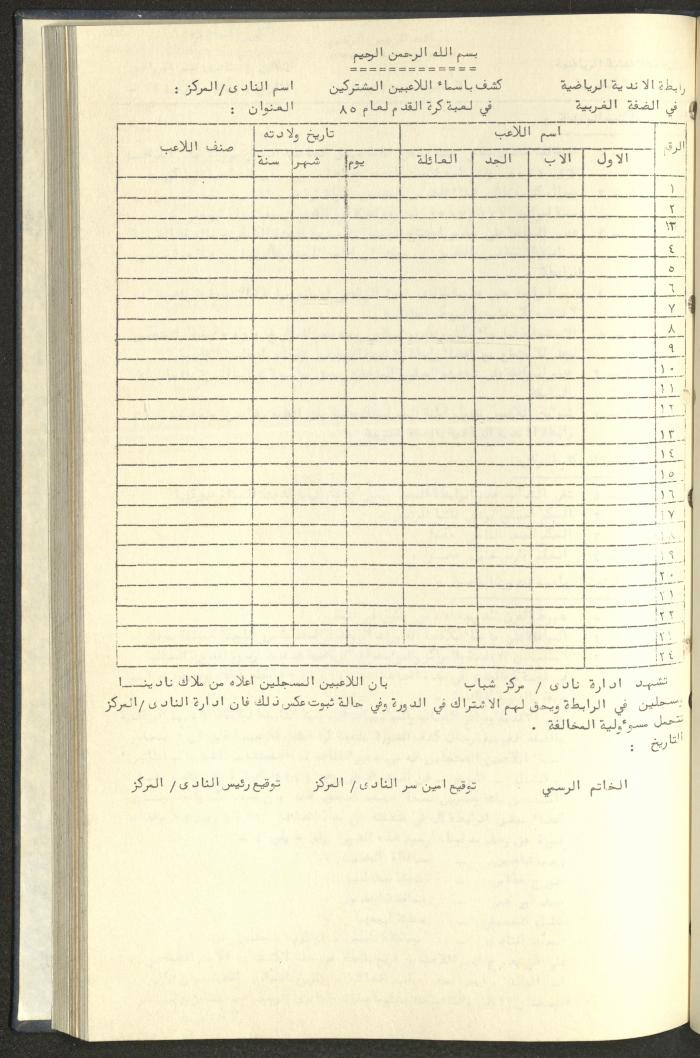 بسم الله الرحمن الرحيم
رابطة الاندية الرياضية كشف باسماء اللاعبين المشتركين اسم النادى /المركز :
في الضفة الغربية في لعبة كرة القدم لعام ٨٥ العنوان :
الرقم اسم اللاعب تاريخ ولادته صنف اللاعب
الاول الاب الجد العائلة يوم شهر سنة
١
٢
١٣
٤
٥
٦
٧
٨
٩
١٠
١١
١٢
١٣
١٤
١٥
١٦
١٧
١٨
١٩
٢٠
٢١
٢٢
٢٤
تشهد ادارة نادى / مركز شباب بان اللاعبين المسجلين اعلاه من ملاك نادينـــا
ومسجلين في الرابطة ويحق لهم الاشتراك في الدورة وفي حالة ثبوت عكس ذلك فان ادارة النادى /المركز
تتحمل مسوءولية المخالفة .
التاريخ :
الخاتم الرسمي توقيع امين سر النادى/ المركز توقيع رئيس النادى/ المركز